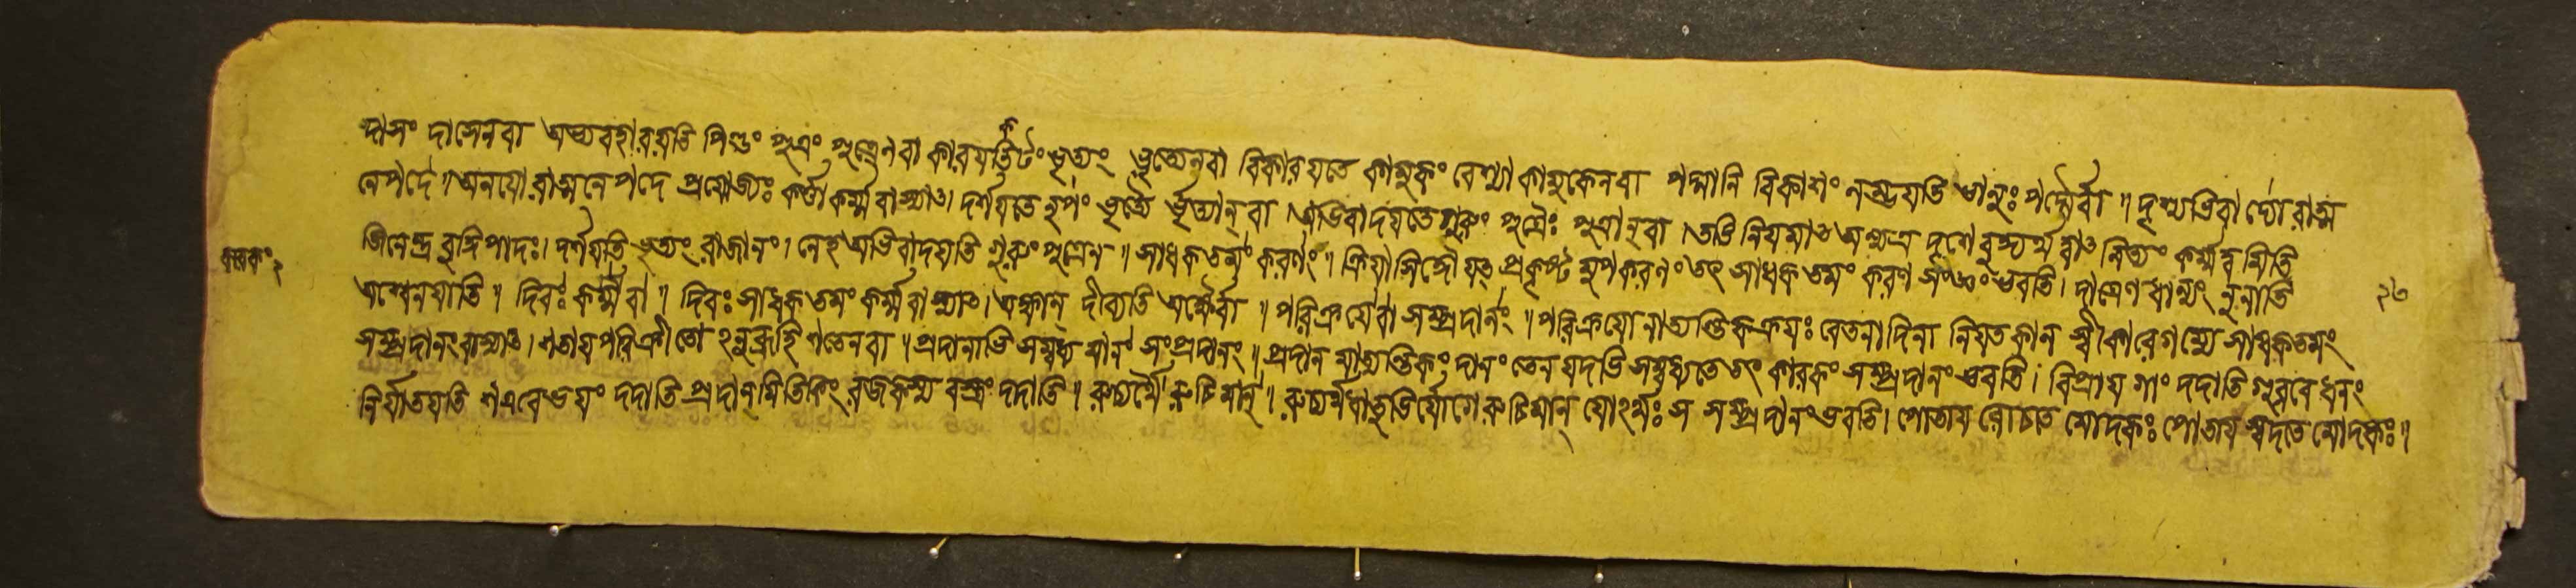 দাসং দাসেনবা অভ্যবহারয়তি পিণ্ডং পুত্রং পুত্রেণবা কারয়তি কটং ভৃত্যং ভৃত্যেনবা বিকারয়তে কামুকং বেশ্যা কামুকেনবা পদ্মানি বিকাশং নম্ভয়তি ভানুঃ পদ্মৈর্বা ॥ দৃশ্যভিবাদ্যোরাত্ম
নেপদে ॥ অনয়োরাত্মনেপদে প্রযোজ্যঃ কর্ত্তা কর্ম্মবাস্যাৎ। দর্শয়তে নৃপং ভৃত্যৈ র্ভৃত্যান্ বা । অভিবাদয়তে গুরুং পুত্রৈঃ পুত্রান্ বা । তঙি নিয়মাৎ অন্যত্র দৃশে র্বুধ্যর্থত্বাৎ নিত্যং কর্ম্মত্বমিতি
জিনেন্দ্রবুদ্ধিপাদঃ। দর্শয়তি ভৃত্যং রাজানং। নেহ অভিবাদয়তি গুরুং পুত্রেন ॥ সাধকতমং করণং ॥ ক্রিয়াসিদ্ধৌ যৎ প্রকৃষ্টমুপকরণং তৎ সাধকতমং করণ সংজ্ঞং ভবতি। দাত্রেণ ধান্যং লুনাতি
অশ্বেনযাতি ॥ দিবঃ কর্ম্মবা ॥ দিবঃ সাধকতমং কর্ম্মবাস্যাৎ। অক্ষান্ দীব্যতি অক্ষৈর্বা ॥ পরিক্রয়েবা সম্প্রদানং ॥ পরিক্রয়োনাত্যন্তিকক্রয়ঃ বেতনাদিনা নিয়তকাল স্বীকারেগম্যে সাধকতমং
সম্প্রদানংবাস্যাৎ। শতায় পরিক্রীতো ঽনুব্রূহি শতেনবা ॥ প্রদানাভিসম্বধ্যমানং সংপ্রদানং ॥ প্রদানমাত্যন্তিকং দানং তেন যদভিসম্বধ্যতে তৎ কারকং সম্প্রদানং ভবতি । বিপ্রায় গাং দদাতি গুরবে ধনং
নির্যাতয়তি শত্রবেভয়ং দদাতি প্রদানমিতিকিং রজকস্য বস্ত্রং দদাতি ॥ রুচ্যর্থৈ রুচিমান্ ॥ রুচ্যর্থধাতুভির্যোগে রুচিমান্ যোঽর্থঃ স সম্প্রদানং ভবতি। পোতায় রোচতে মোদকঃ পোতায় স্বদতে মোদকঃ॥
কারকং ২
২৬